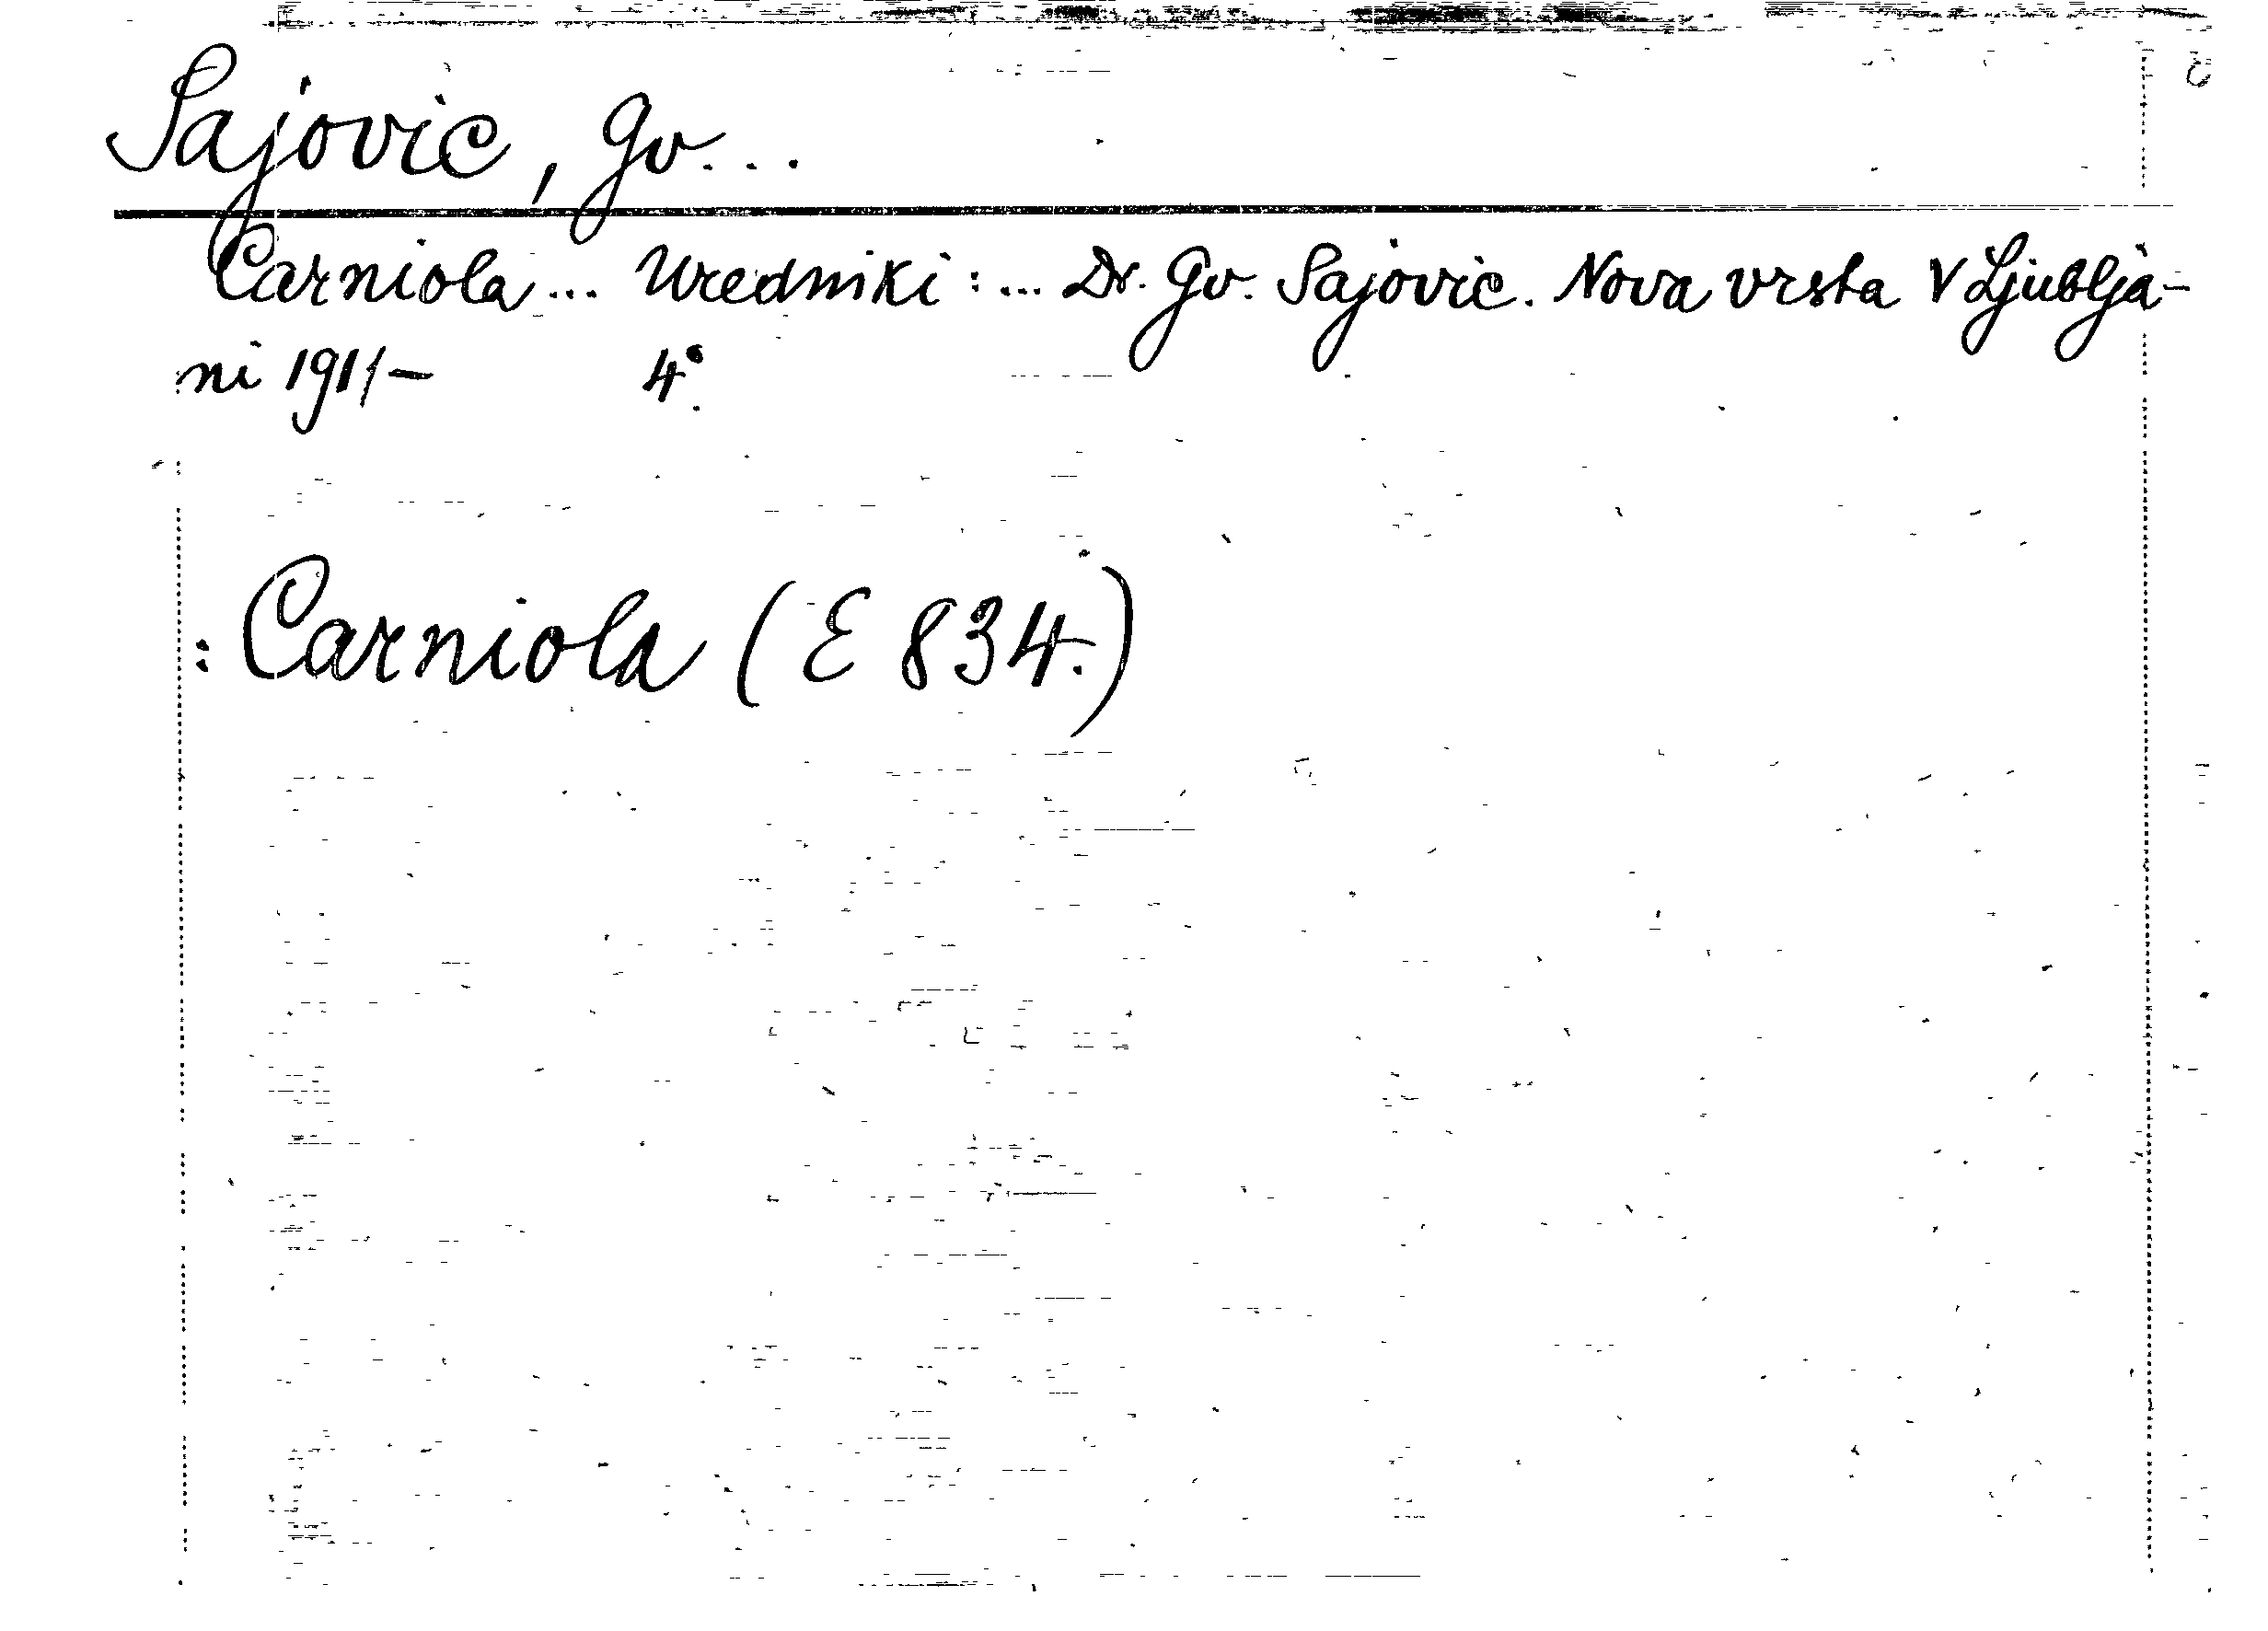 Sajovic, Gv...
Carniola... Uredniki: ... Dr. Gv. Sajovic. Nova vrsta V Ljublja-
ni 1911- 4°.
: Carniola (E 834.)